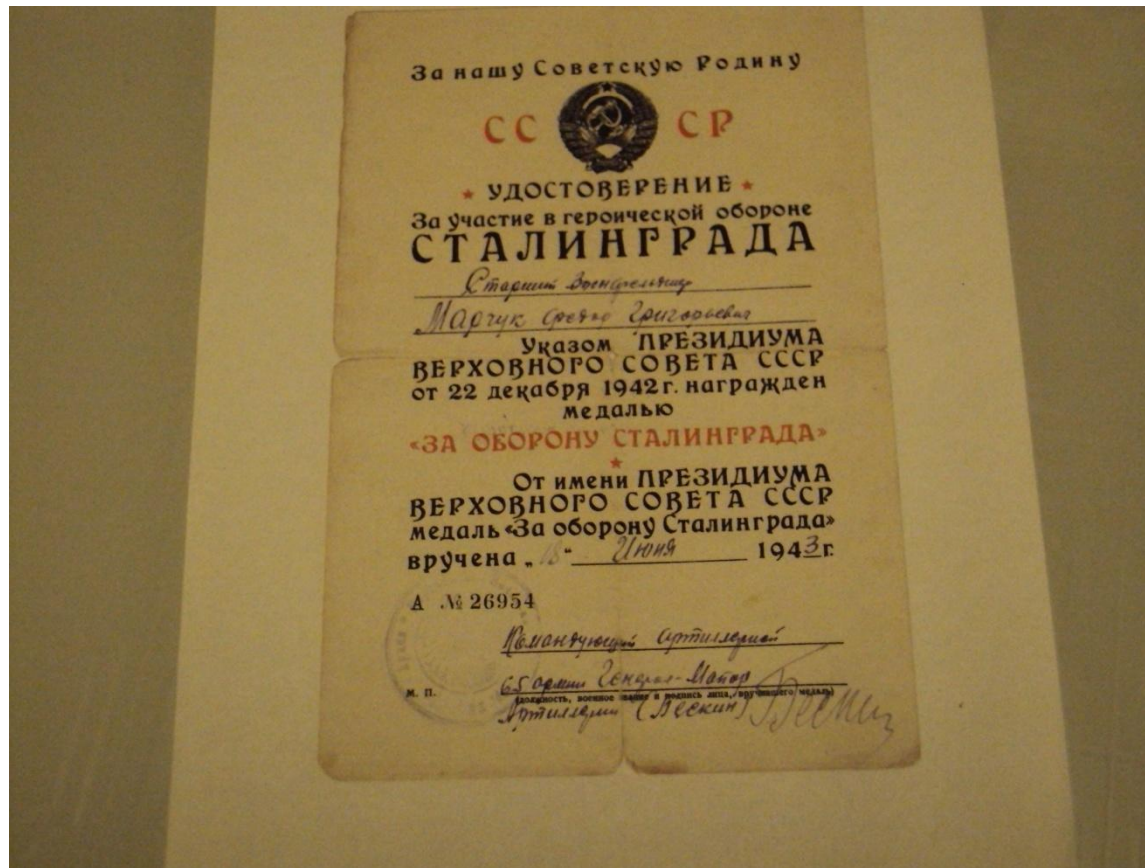 За нашу Советскую Родину
СС СР
УДОСТОВЕРЕНИЕ
За участие в героической обороне
СТАЛИНГРАДА
Старший
Марчук Григорьевич
Указом ПРЕЗИДИУМА
ВЕРХОВНОГО СОВЕТА СССР
от 22 декабря 1942 г. награжден
медалью
«ЗА ОБОРОНУ СТАЛИНГРАДА»
От имени ПРЕЗИДИУМА
ВЕРХОВНОГО СОВЕТА СССР
медаль «За оборону Сталинграда»
вручена „18“ Июня 1943 г.
А № 26954
Командующий артиллерией
65 армии Генерал-Майор
М. П.
(должность, военное звание и подпись лица, вручившего медаль)
Артиллерии (Бескин) Бескин